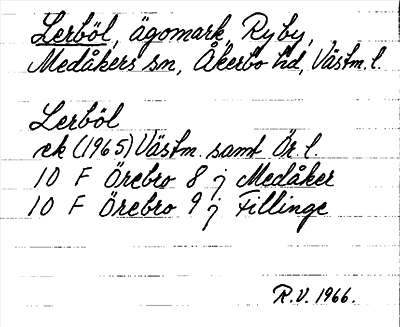 Lerböl, ägomark, Ryby,
Medåkers sn, Åkerbo hd, Västm. l.
Lerböl
ek (1965) Västm. samt Ör l.
10 F Örebro 8 j Medåker
10 F Örebro 9 j Fillinge
R.V. 1966.